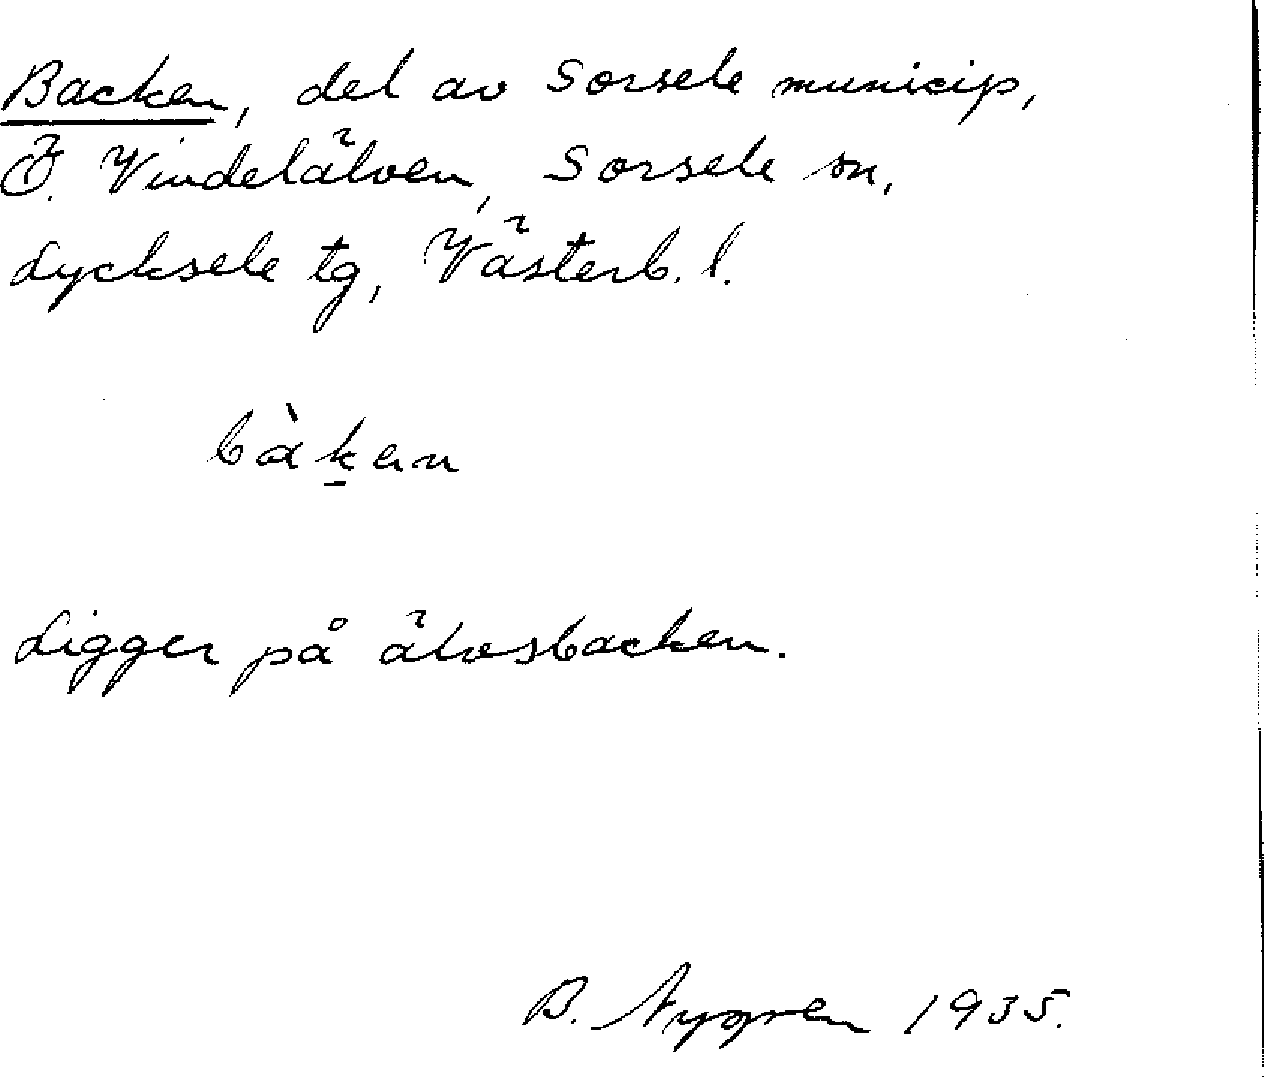 Backen, del av Sorsele municip,
Ö. Vindelälven, Sorsele sn,
Lycksele tg, Västerb. l.
bàk̠en
Ligger på älvsbacken.
B. Nygren 1935.